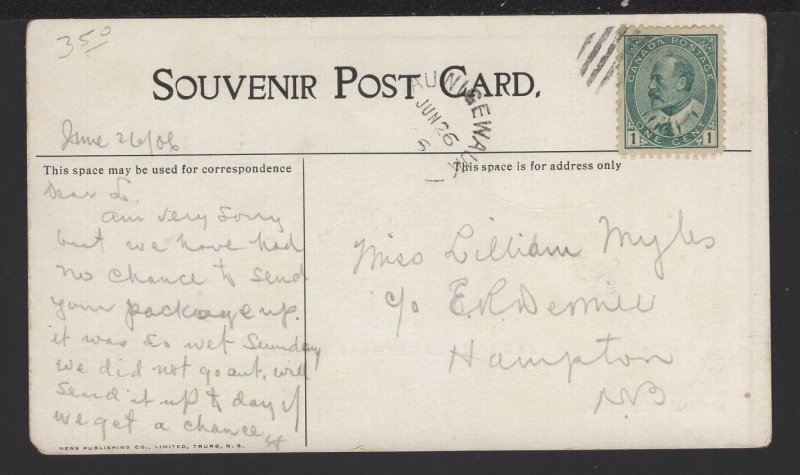 3.50
SOUVENIR POST CARD.
CANADA POSTAGE
ONE CENT
1 1
JUN 26
6
June 26/06
This space may be used for correspondence
This space is for address only
Dear L.
am very sorry
but we have had
no chance to send
your package up.
it was so wet Sunday
we did not go out. will
send it up to day if
we get a chance
Miss Lillian Myles
c/o E.R. Demill
Hampton
NB
NEWS PUBLISHING CO., LIMITED, TRURO, N. S.